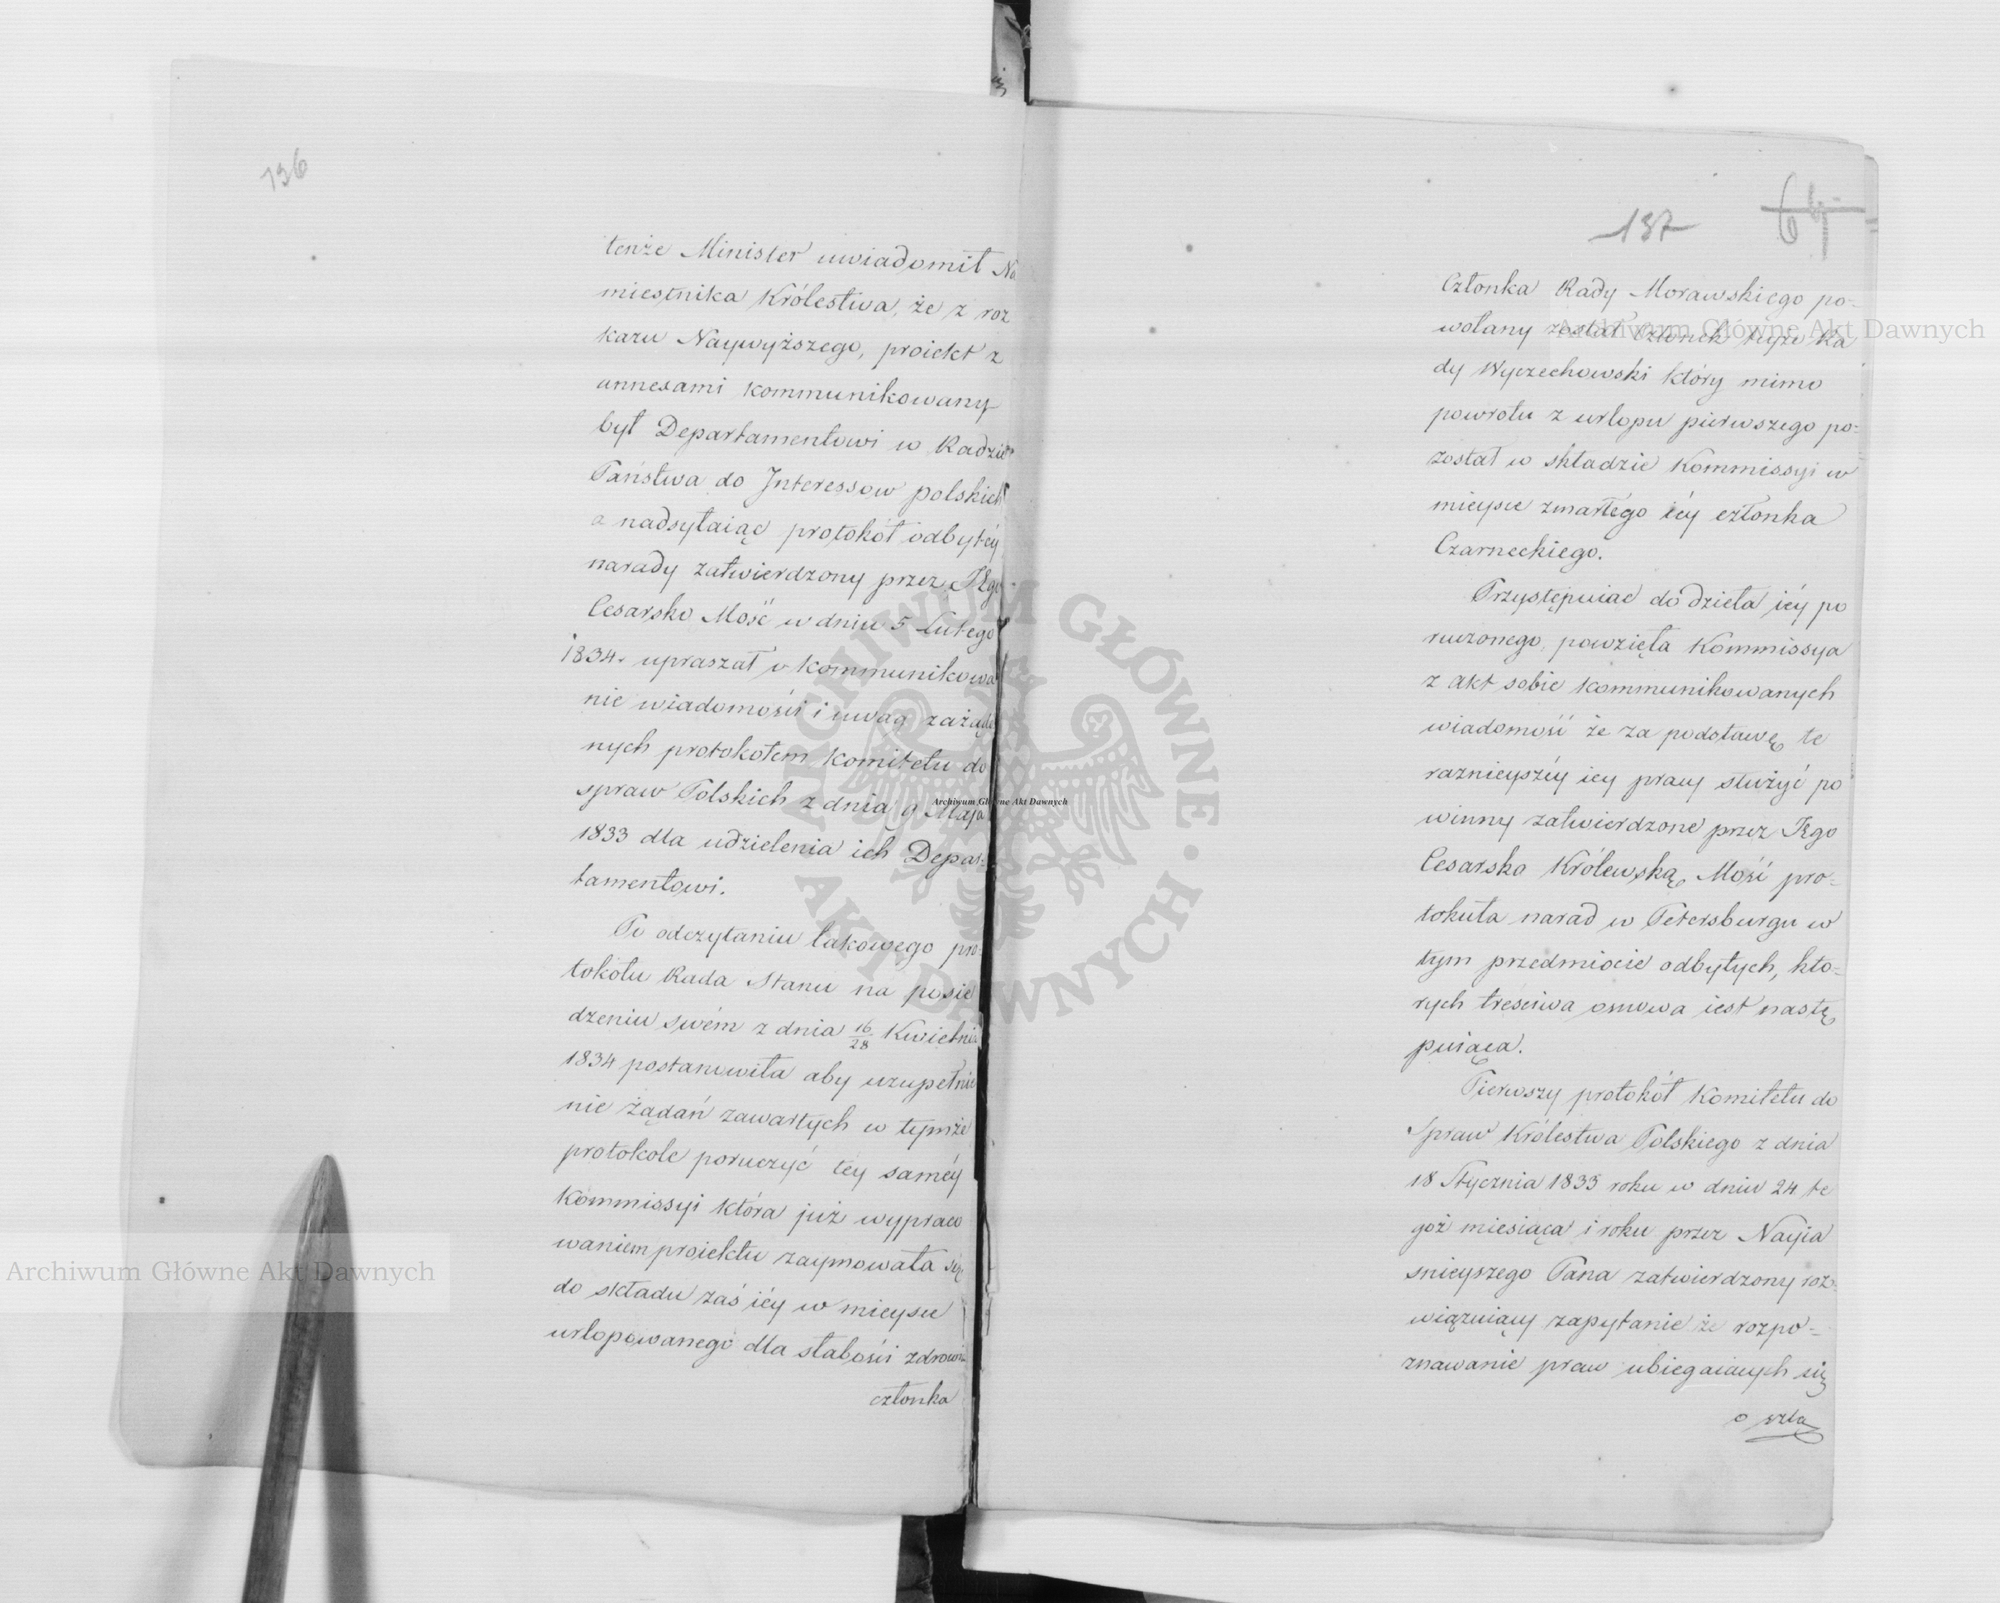 136
tenże Minister uwiadomił Na
miestnika Królestwa, że z roz
kazu Naywyższego, proiekt z
annexami kommunikowany
był Departamentowi w Radzie
Państwa do Interessow polskich
a nadsyłaiąc protokół odbytéy
narady zatwierdzony przez JEgo
Cesarsko Mość w dniu 5 Lutego
1834. upraszał o kommunikowa
nie wiadomości i uwag zażąda
nych protokołem Komitetu do
spraw Polskich z dnia 9 Maja
1833 dla udzielenia ich Depar-
tamentowi.
Po odczytaniu takowego pro-
tokółu Rada Stanu na posie
dzeniu swém z dnia 16/28 Kwietnia
1834 postanowiła aby uzupełnie
nie żądań zawartych w tymże
protokole poruczyć téy saméy
Kommissyi która już wypraco
waniem proiektu zaymowała się
do składu zaś iéy w mieysce
urlopowanego dla słabości zdrowia
członka
137
64
Członka Rady Morawskiego po-
wołany został Członek teyże Ra
dy Wyczechowski który mimo
powrotu z urlopu pierwszego po-
został w składzie Kommissyi w
mieysce zmarłego iéy członka
Czarneckiego.
Przystępuiac do dzieła iéy po
ruczonego, powzięła Kommissya
z akt sobie kommunikowanych
wiadomość że za podstawę te
raznieyszéy iey pracy służyć po
winny zatwierdzone przez JEgo
Cesarsko Królewską Mość pro-
tokuła narad w Petersburgu w
tym przedmiocie odbytych, któ-
rych treściwa osnowa iest nastę
puiąca.
Pierwszy protokół Komitetu do
Spraw Królestwa Polskiego z dnia
18 Stycznia 1833 roku w dniu 24 te
goż miesiąca i roku przez Nayia
śnieyszego Pana zatwierdzony roz-
wiązuiący zapytanie że rozpo-
znawanie praw ubiegaiących się
o szla
Archiwum Główne Akt Dawnych
Archiwum Główne Akt Dawnych
Archiwum Główne Akt Dawnych
ARCHIWUM GŁÓWNE · AKT DAWNYCH ·